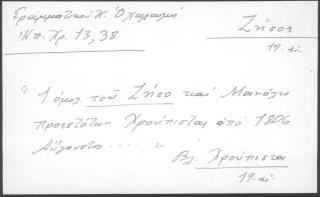 Γραμματικοῦ Χ. Ὁ χαλασμὸ
Ἠπ. Χρ. 13, 38
Ζῆσος
19. αἰ.
"1 ὁμολ. τοῦ Ζήσο καὶ Μανόλη
προεστότων Χρούπιστας ἀπὸ 1806
Αὔγουστο ....."
Βλ. Χρούπιστα
19. αἰ.